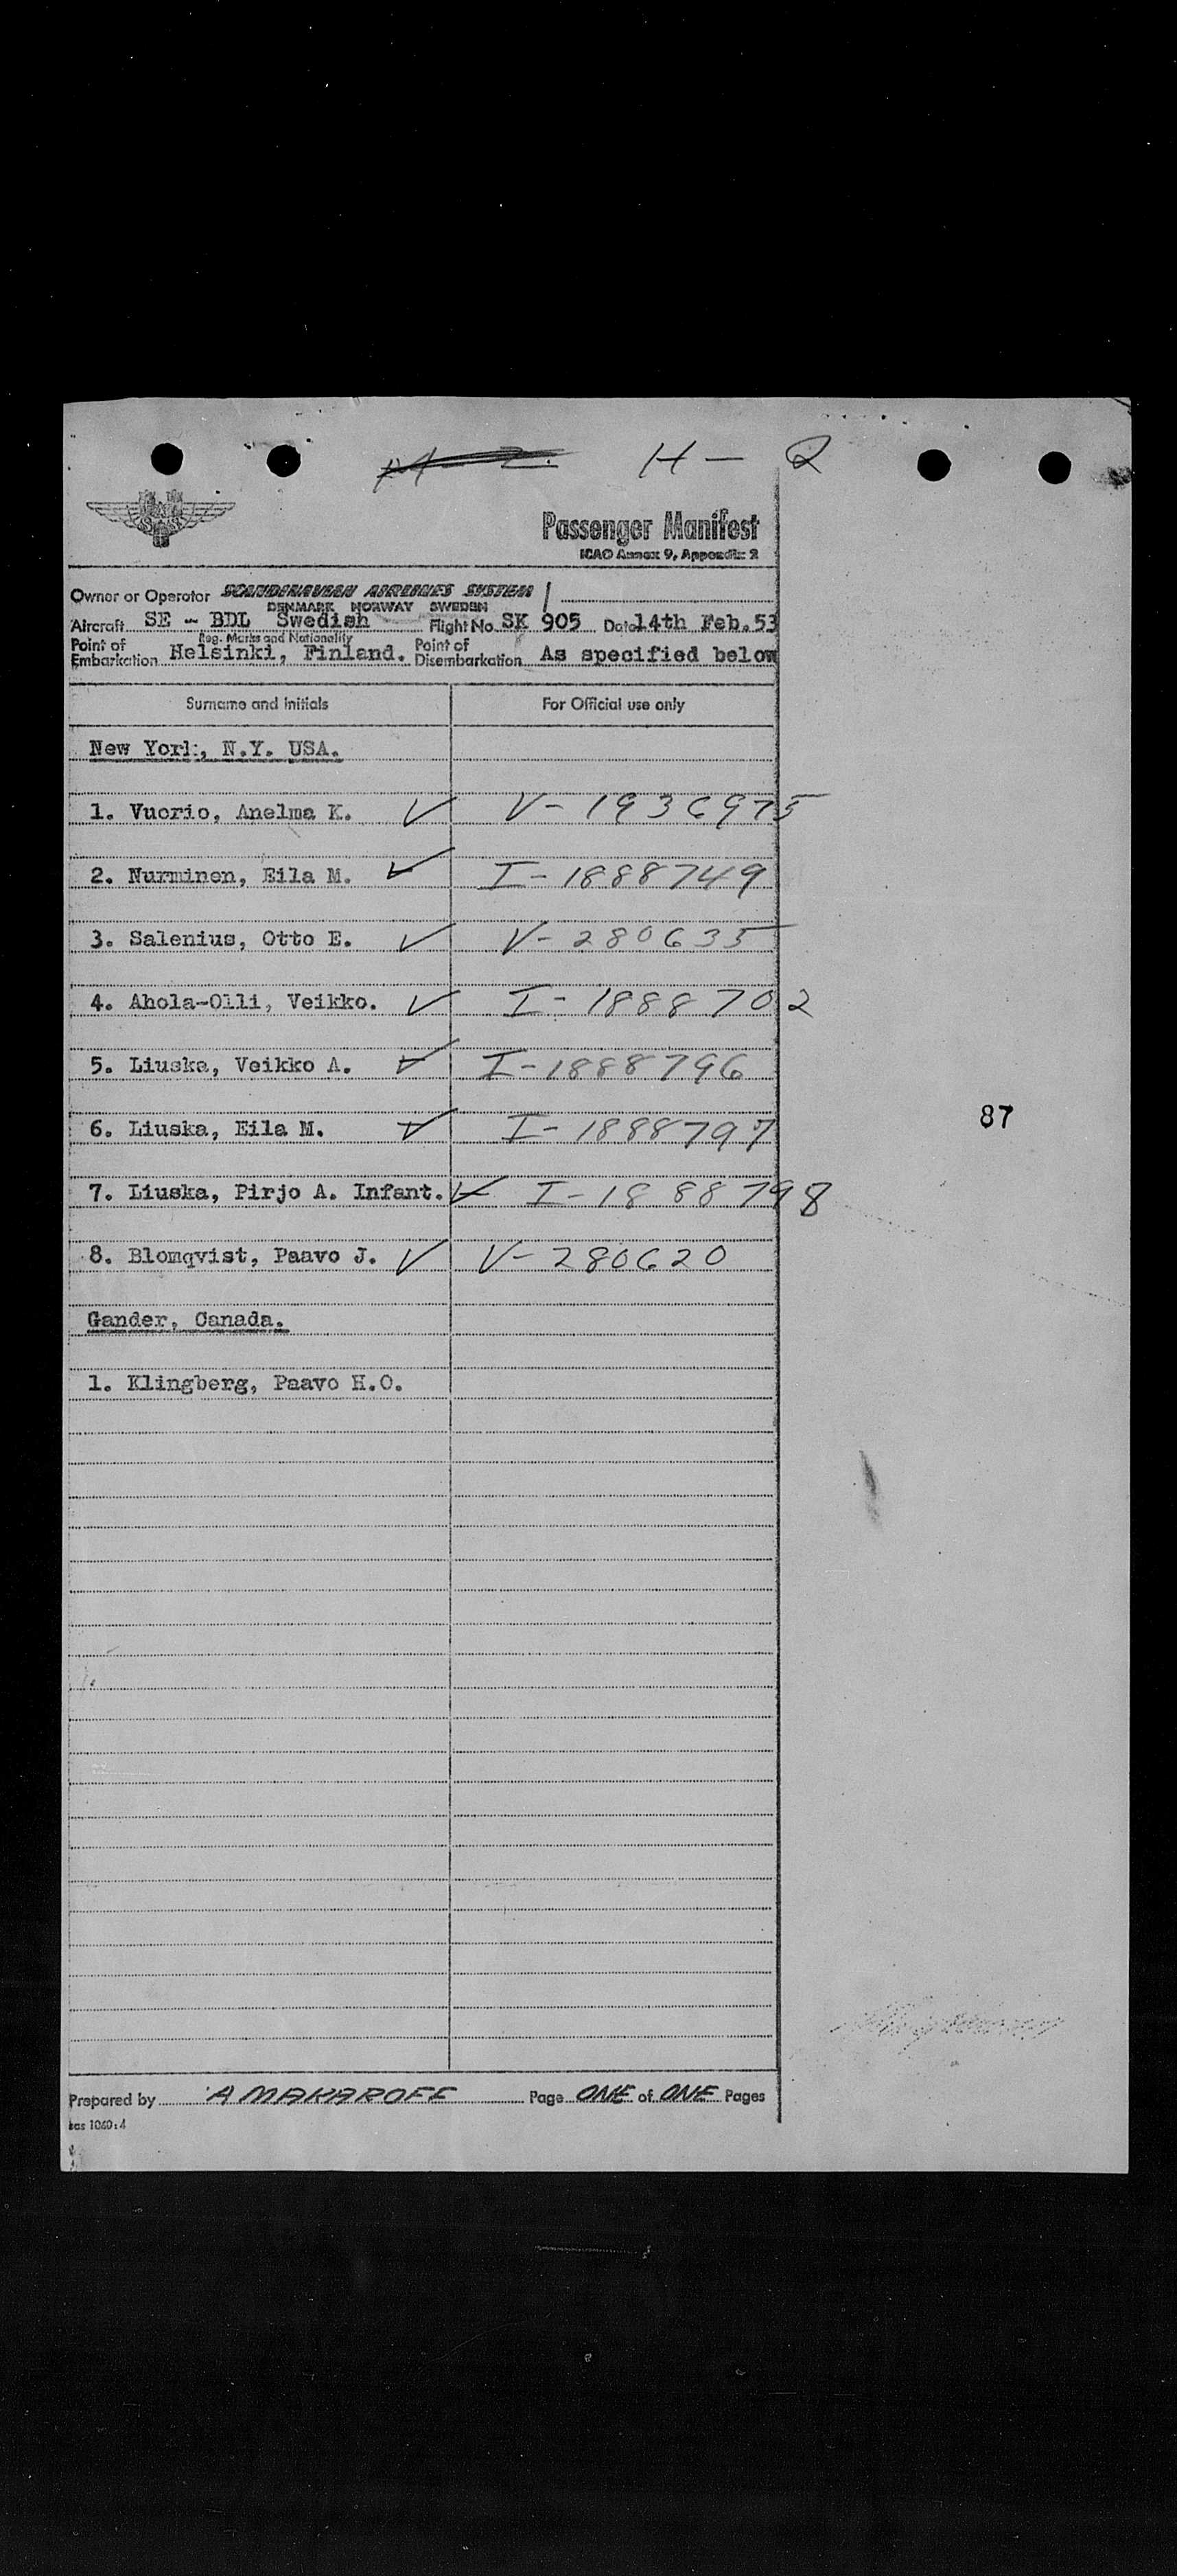 H - 2
Passenger Manifest
ICAO Annex 9, Appendix 2
Owner or Operator SCANDINAVIAN AIRLINES SYSTEM
DENMARK NORWAY SWEDEN
Aircraft SE - BDL Swedish Flight No. SK 905 Date 14th Feb. 53
Reg. Marks and Nationality
Point of Embarkation Helsinki, Finland. Point of Disembarkation As specified below
Surname and Initials For Official use only
New York, N.Y. USA.
1. Vuorio, Anelma K. V- 1936975
2. Nurminen, Eila M. I-1888749
3. Salenius, Otto E. V- 280635
4. Ahola-Olli, Veikko. I- 1888702
5. Liuska, Veikko A. I-1888796
6. Liuska, Eila M. I-1888797
87
7. Liuska, Pirjo A. Infant. I-1888798
8. Blomqvist, Paavo J. V-280620
Gander, Canada.
1. Klingberg, Paavo H.O.
Prepared by A MAKAROFF Page ONE of ONE Pages
sas 1060:4